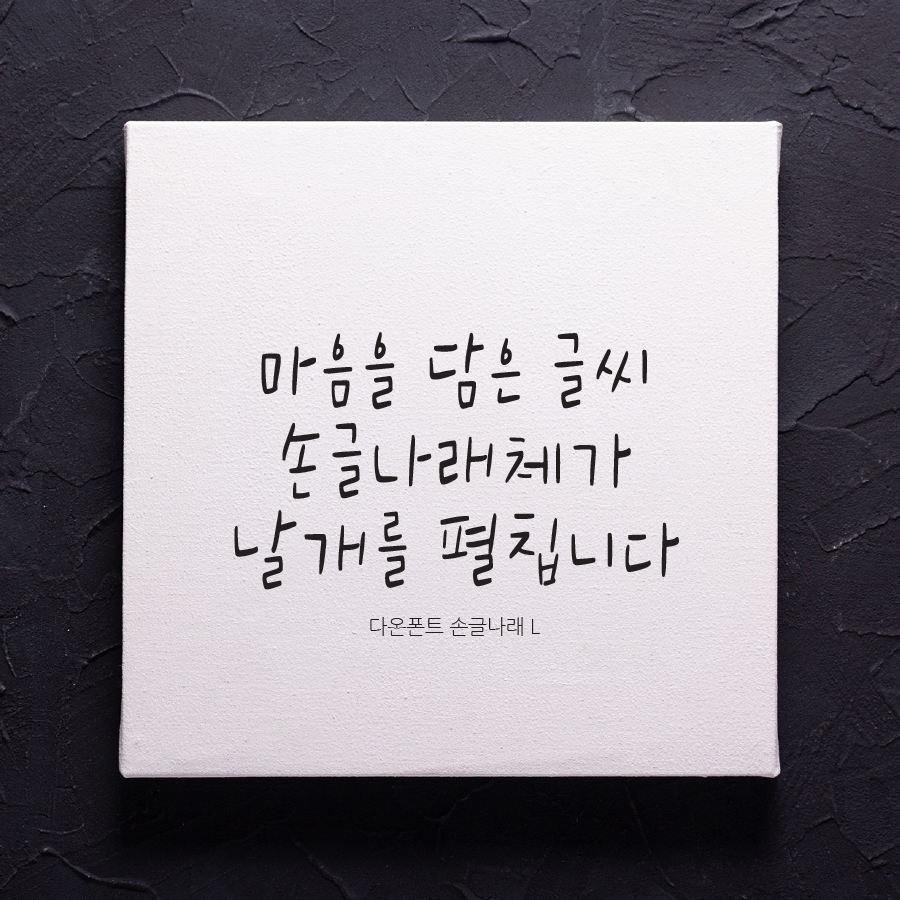 마음을 담은 글씨
손글나래체가
날개를 펼칩니다
다온폰트 손글나래 L